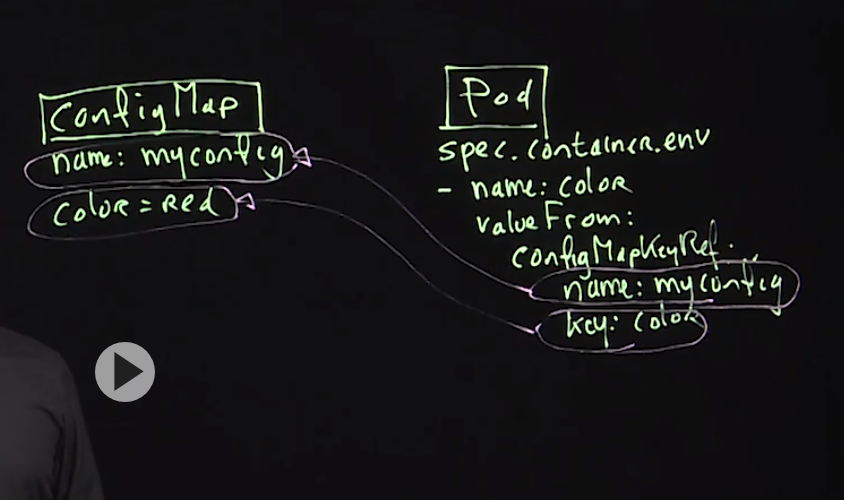 ConfigMap
name: myconfig
color = red
Pod
spec.container.env
- name: color
valueFrom:
configMapKeyRef:
name: myconfig
key: color